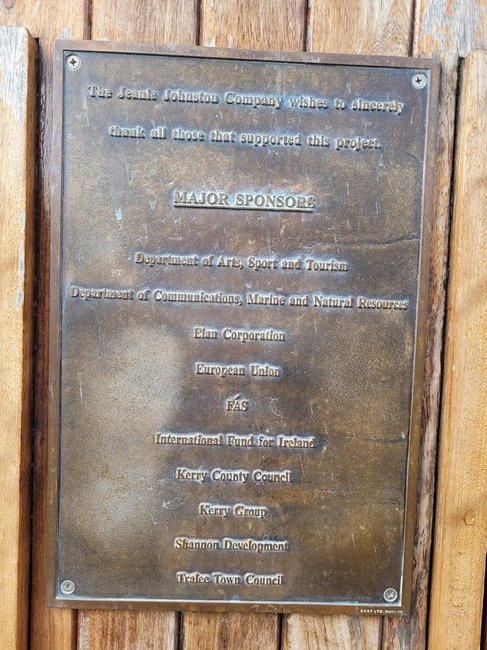 The Jeanie Johnston Company wishes to sincerely
thank all those that supported this project.
MAJOR SPONSORS
Department of Arts, Sport and Tourism
Department of Communications, Marine and Natural Resources
Elan Corporation
European Union
FÁS
International Fund for Ireland
Kerry County Council
Kerry Group
Shannon Development
Tralee Town Council
CAST LTD. DUBLIN